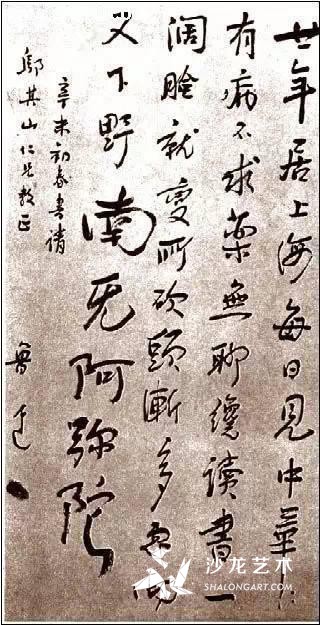 廿年居上海每日見中華
有病不求藥無聊纔讀書一
闊臉就變所砍頭漸多忽而
又下野南无阿弥陀
辛未初春書請
鄔其山仁兄教正
魯迅
沙龙艺术
SHALONGART.COM